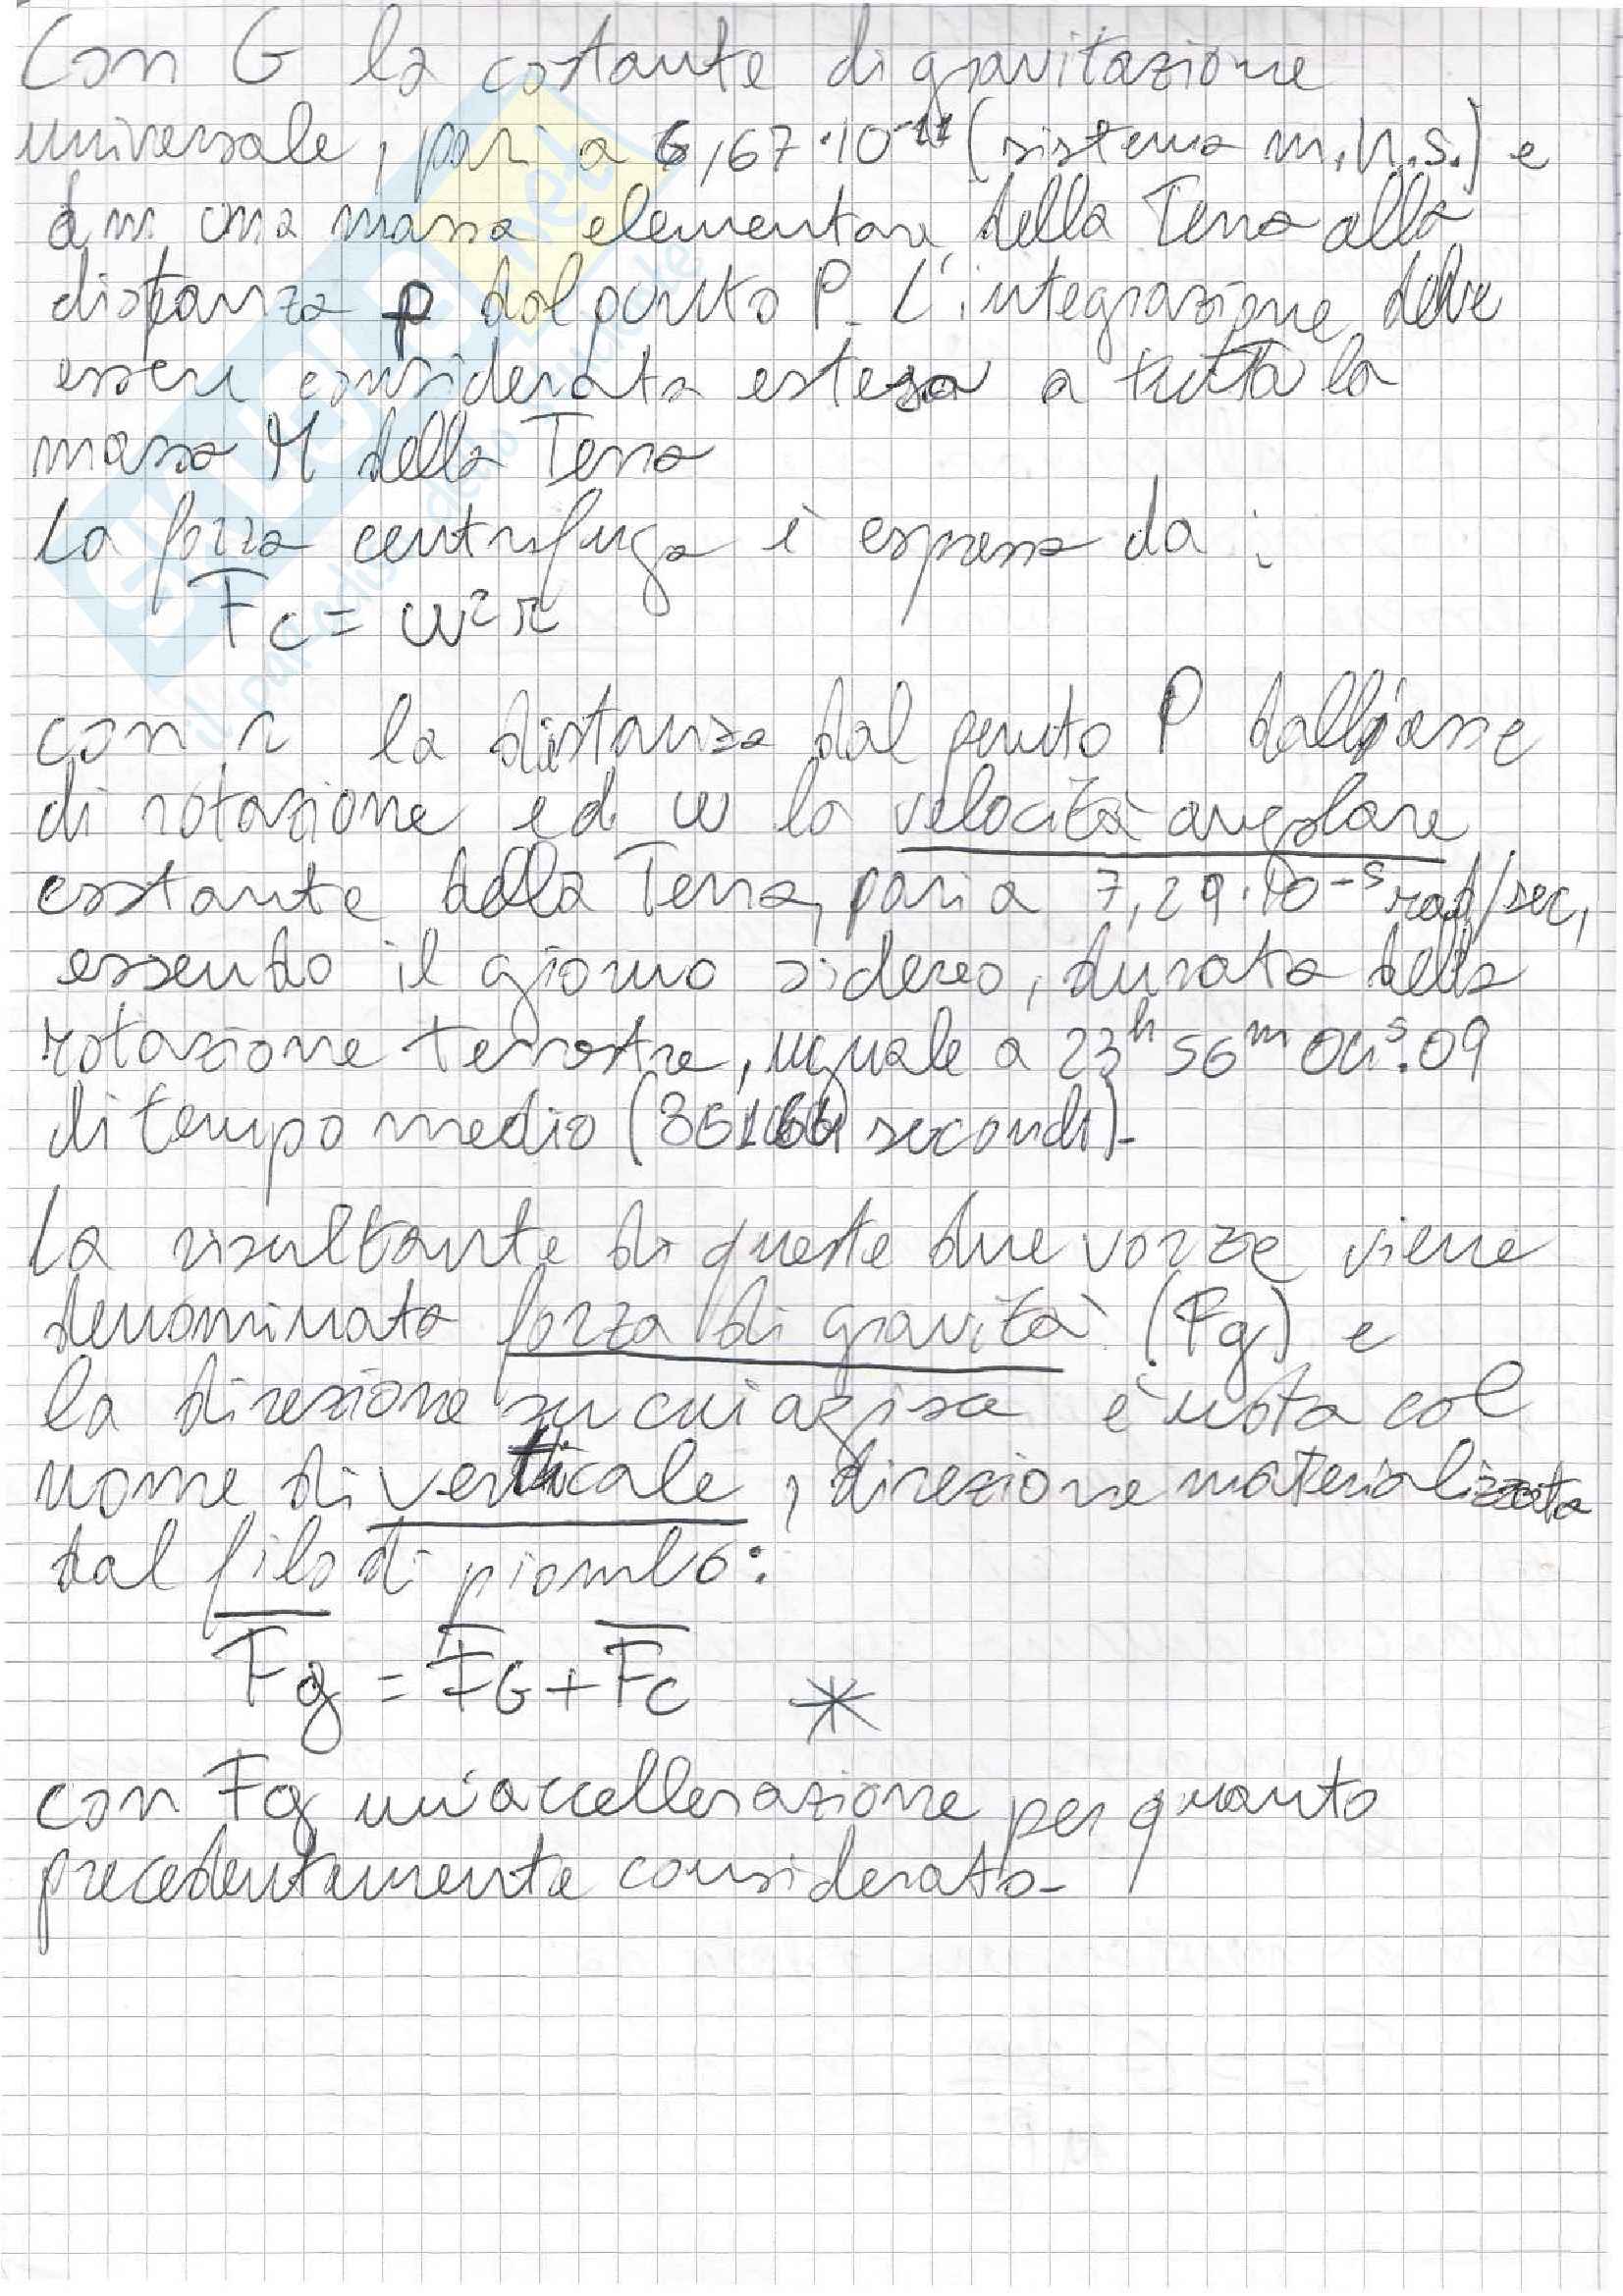 Con G la costante di gravitazione
universale, pari a 6,67·10⁻¹¹ (sistema m.k.s.) e
dm una massa elementare della Terra alla
distanza ρ dal punto P. L'integrazione deve
essere considerata estesa a tutta la
massa M della Terra
La forza centrifuga è espressa da:
F̅c = ω²r
con r la distanza dal punto P dall'asse
di rotazione ed ω la velocità angolare
costante della Terra, pari a 7,29·10⁻⁵ rad/sec,
essendo il giorno sidereo, durata della
rotazione terrestre, uguale a 23ʰ 56ᵐ 04ˢ.09
di tempo medio (86164 secondi).
La risultante di queste due vorze viene
denominata forza di gravità (Fg) e
la direzione su cui agisce è nota col
nome di verticale, direzione materializzata
dal filo di piombo:
F̅g = F̅G + F̅c *
con Fg un'accellerazione per quanto
precedentemente considerato-
SKUOLA.net
il paradiso dello studente